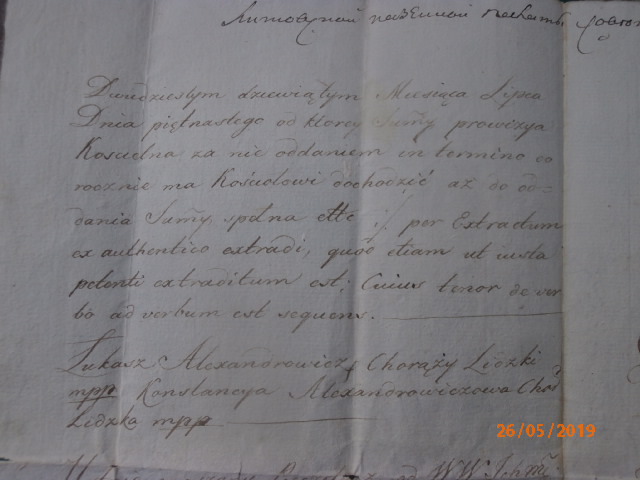 Dwudziestym dziewiątym Miesiąca Lipca
Dnia piętnastego od ktorey Summy prowizya
Koscielna za nie oddaniem in termino co
rocznie ma Kościołowi dochodzić aż do od=
dania Summy spełna ette if. per Extractum
ex authentico extradi, quod etiam ut iusta
petenti extraditum est; Cuius tenor de ver
bo ad verbum est sequens.
Łukasz Alexandrowicz Chorąży Lidzki
mpp Konstancya Alexandrowiczowa Cho
Lidzka mpp
WW Ichm
26/05/2019